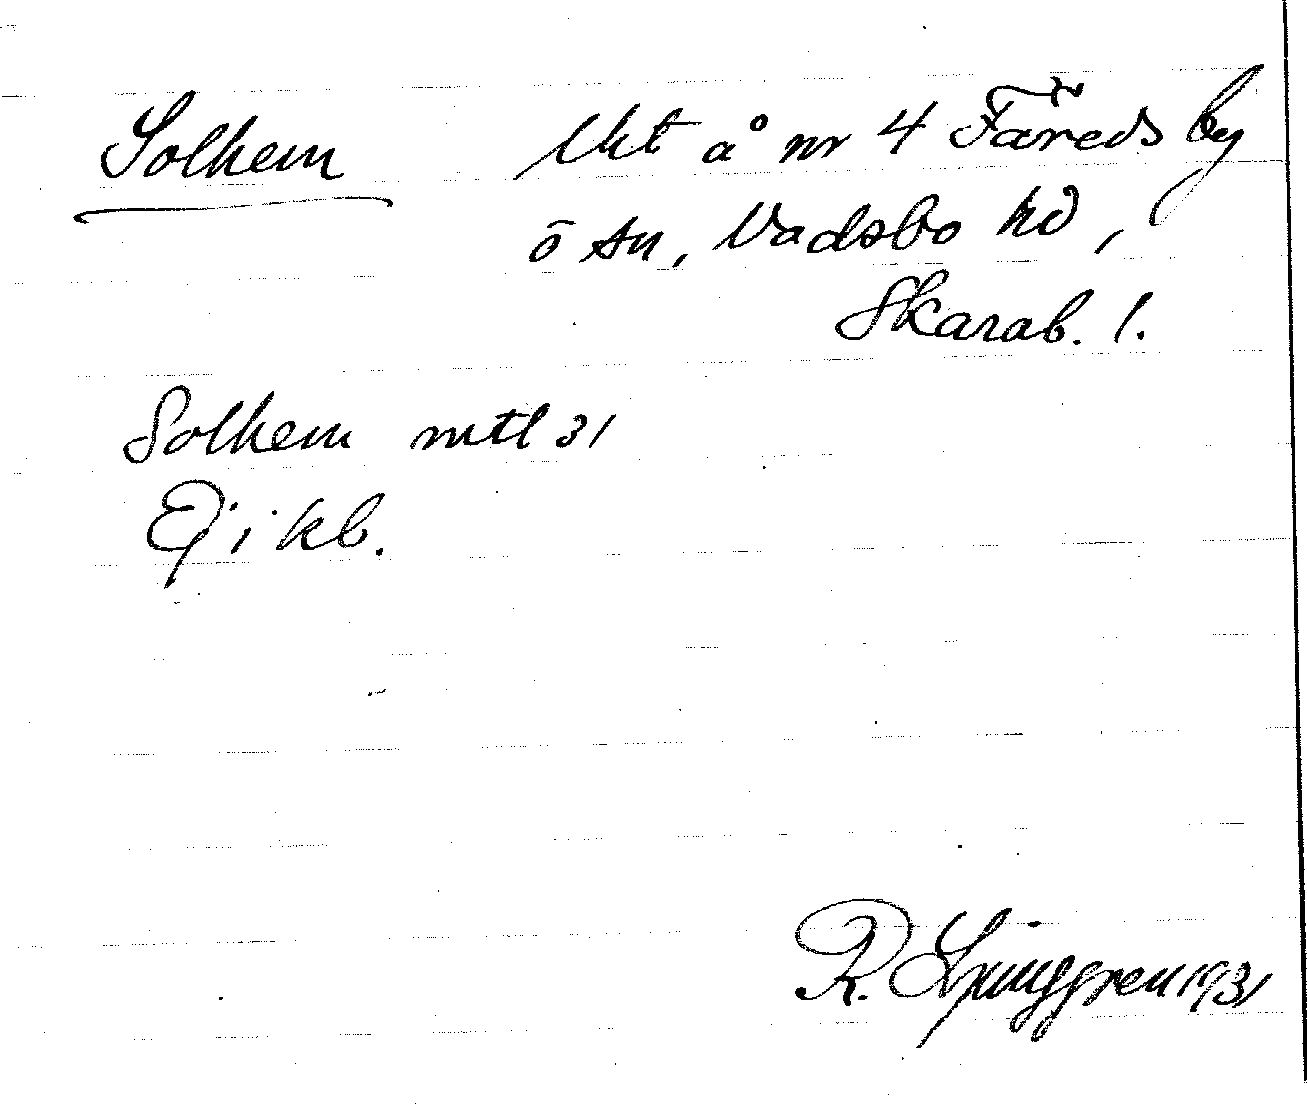 Solhem Uht å nr 4 Färeds by
ō sn, Vadsbo hd,
Skarab. l.
Solhem mtl 31
Ej i kb.
R. Ljunggren 1931